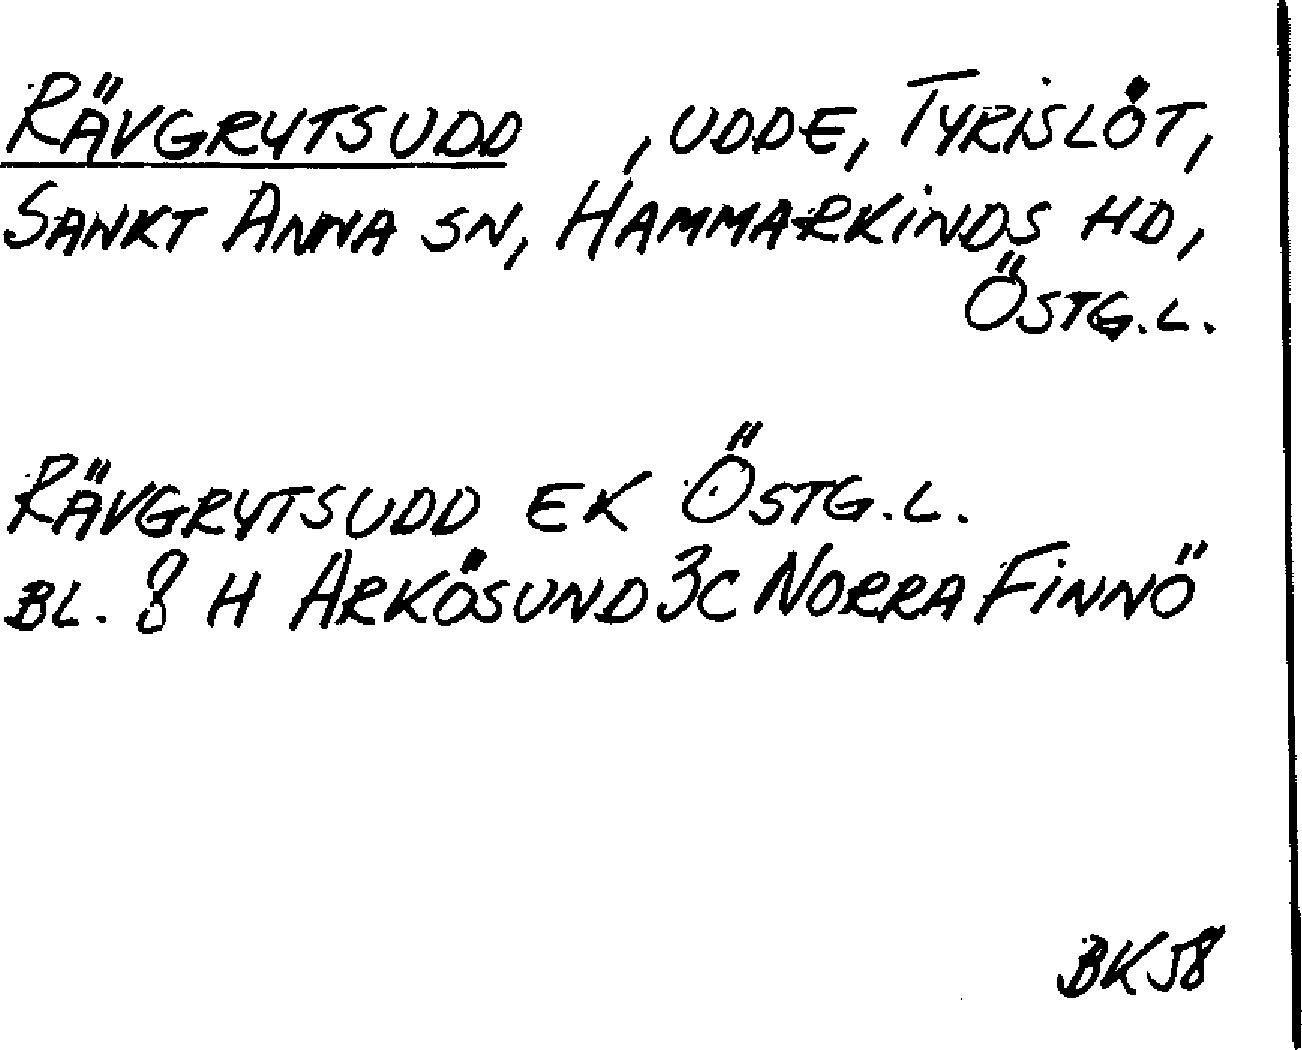 RÄVGRYTSUDD , UDDE, TYRISLÖT,
SANKT ANNA SN, HAMMARKINDS HD,
ÖSTG.L.
RÄVGRYTSUDD EK ÖSTG.L.
BL. 8 H ARKÖSUND 3C NORRA FINNÖ
BK 58